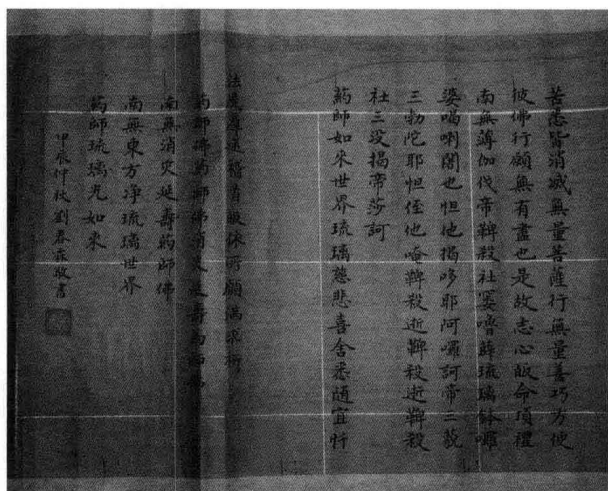 苦悉皆消滅無量菩薩行無量善巧方便
彼佛行願無有盡也是故志心皈命頂禮
南無薄伽伐帝鞞殺社窶嚕薛琉璃鉢喇
婆喝囉闍也怛他揭哆耶阿囉訶帝三藐
三勃陀耶怛侄他唵鞞殺逝鞞殺逝鞞殺
社三没揭帝莎訶
藥師如來世界琉璃慈悲喜舍悉隨宜
法稽首皈依所願滿求
藥師佛藥師佛消災延壽藥師佛
南無消災延壽藥師佛
南無東方净琉璃世界
藥師琉璃光如來
甲辰仲秋劉春霖敬書